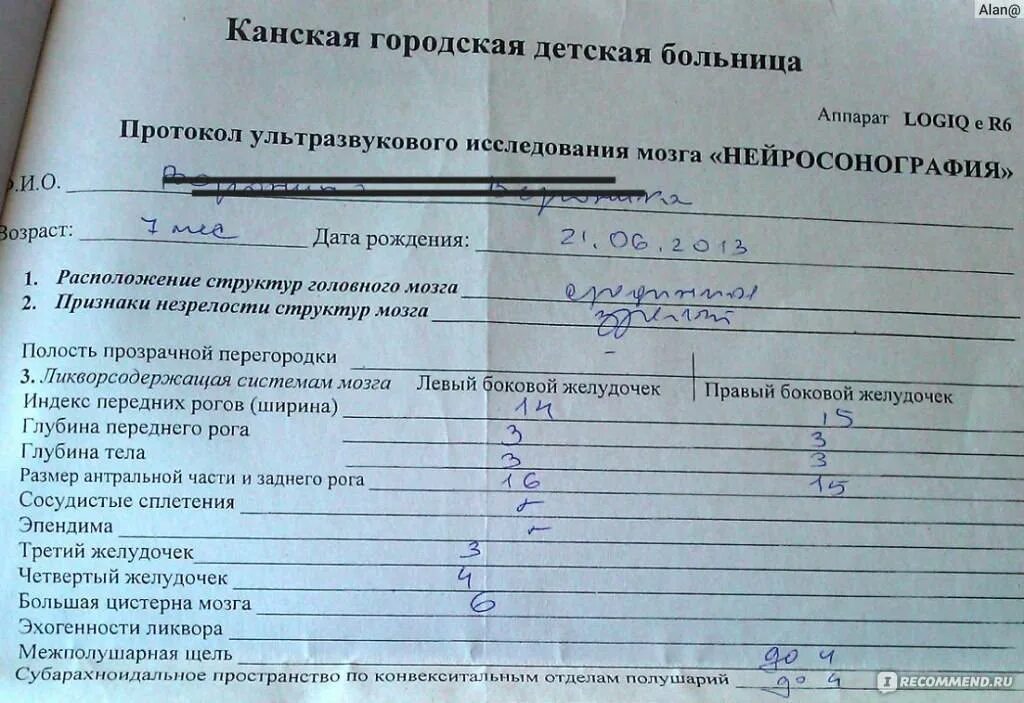 Alan@
Канская городская детская больница
Аппарат LOGIQ e R6
Протокол ультразвукового исследования мозга «НЕЙРОСОНОГРАФИЯ»
Ф.И.О.
Возраст: 7 мес Дата рождения: 21.06.2013
1. Расположение структур головного мозга срединное
2. Признаки незрелости структур мозга зрелый
Полость прозрачной перегородки -
3. Ликворсодержащая системам мозга Левый боковой желудочек Правый боковой желудочек
Индекс передних рогов (ширина) 14 15
Глубина переднего рога 3 3
Глубина тела 3 3
Размер антральной части и заднего рога 16 15
Сосудистые сплетения
Эпендима
Третий желудочек 3
Четвертый желудочек 4
Большая цистерна мозга 6
Эхогенности ликвора
Межполушарная щель до 4
Субарахноидальное пространство по конвекситальным отделам полушарий до 4
I RECOMMEND.RU